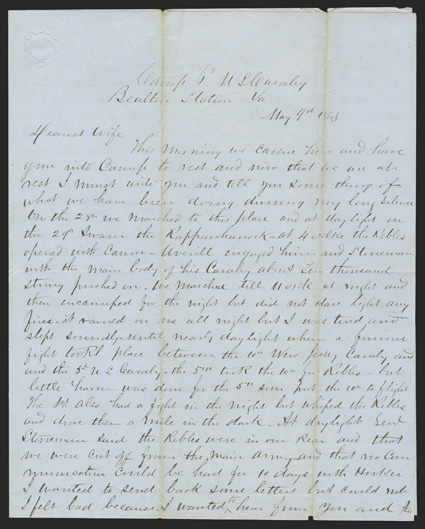 Camp 5" U S Cavalry
Bealton Station Va
May 9" 1863
Dearest Wife
This morning we came here and have
gone into Camp to rest and now that we are at
rest I must write you and tell you some thing of
what we have been doing during my long silence
On the 28" we marched to this place and at daylight on
the 29" Swam the Rappauhanock - at 4 oclk the Rebles
opened with Canon - Averill engaged him and Stoneman
with the main body of his Cavalry about Ten thousand
strong pushed on. We marched till 11 oclk at night and
then encamped for the night but did not dare light any
fires - it rained on us all night but I was tired and
slept soundly until nearly daylight when a furious
fight took place between the 1st New Jersey Cavalry and
and the 5" U S Cavalry - the 5" took the 1st for Rebles - but
little harm was done for the 5" soon put the 1st to flight
The 1st also had a fight in the night but whiped the Rebles
and drove them a mile in the dark - At daylight Genl
Stoneman said the Rebles were in our Rear and that
we were cut off from the main army and that no Com
munication could be had for 10 days with Hooker
I wanted to send back some letters but could not
I felt bad because I wanted hear from you and the